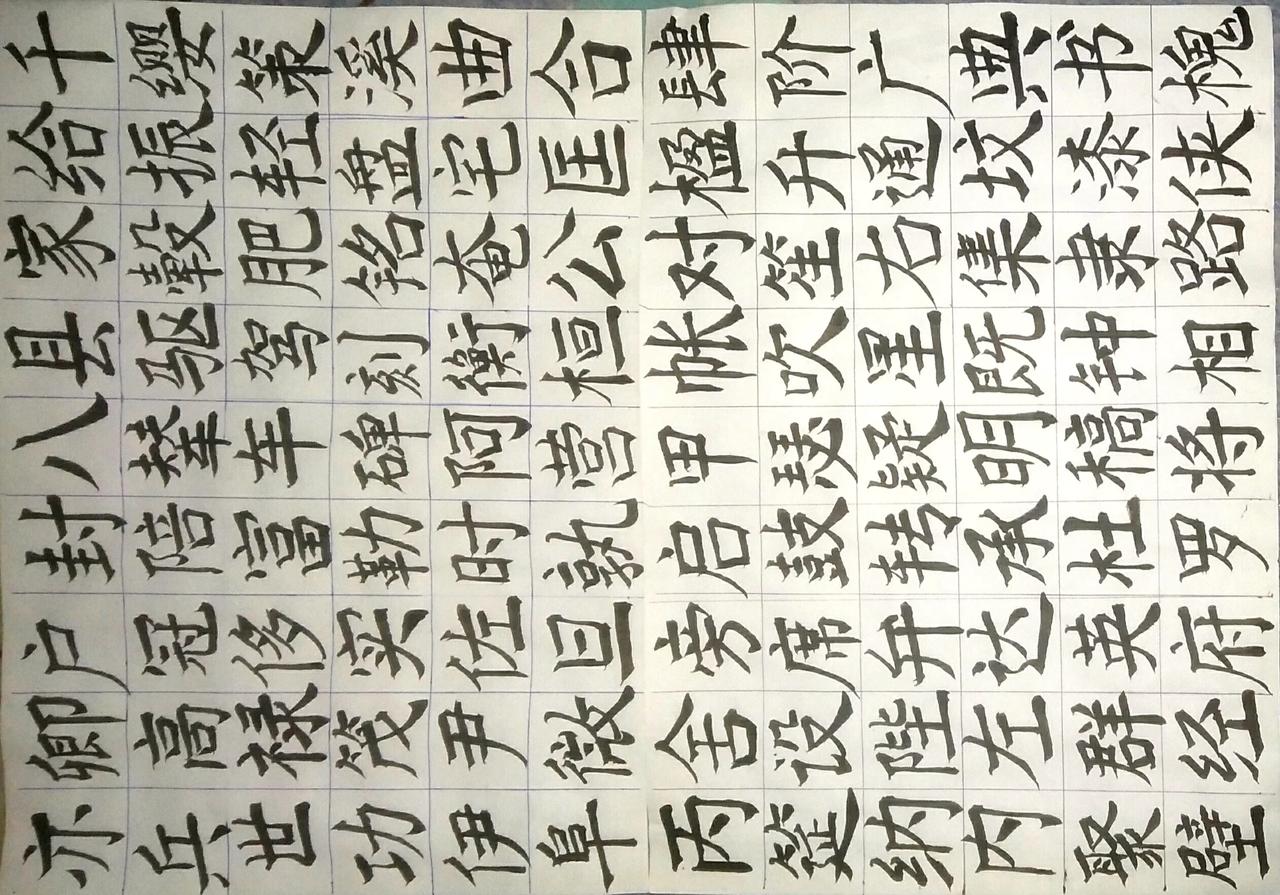 亦卿户封八县家给千
兵高冠陪辇驱毂振缨
世禄侈富车驾肥轻策
功茂实勒碑刻铭盘溪
伊尹佐时阿衡奄宅曲
阜微旦孰营桓公匡合
丙舍旁启甲帐对楹肆
筵设席鼓瑟吹笙升阶
纳陛弁转疑星右通广
内左达承明既集坟典
聚群英杜稿钟隶漆书
壁经府罗将相路侠槐